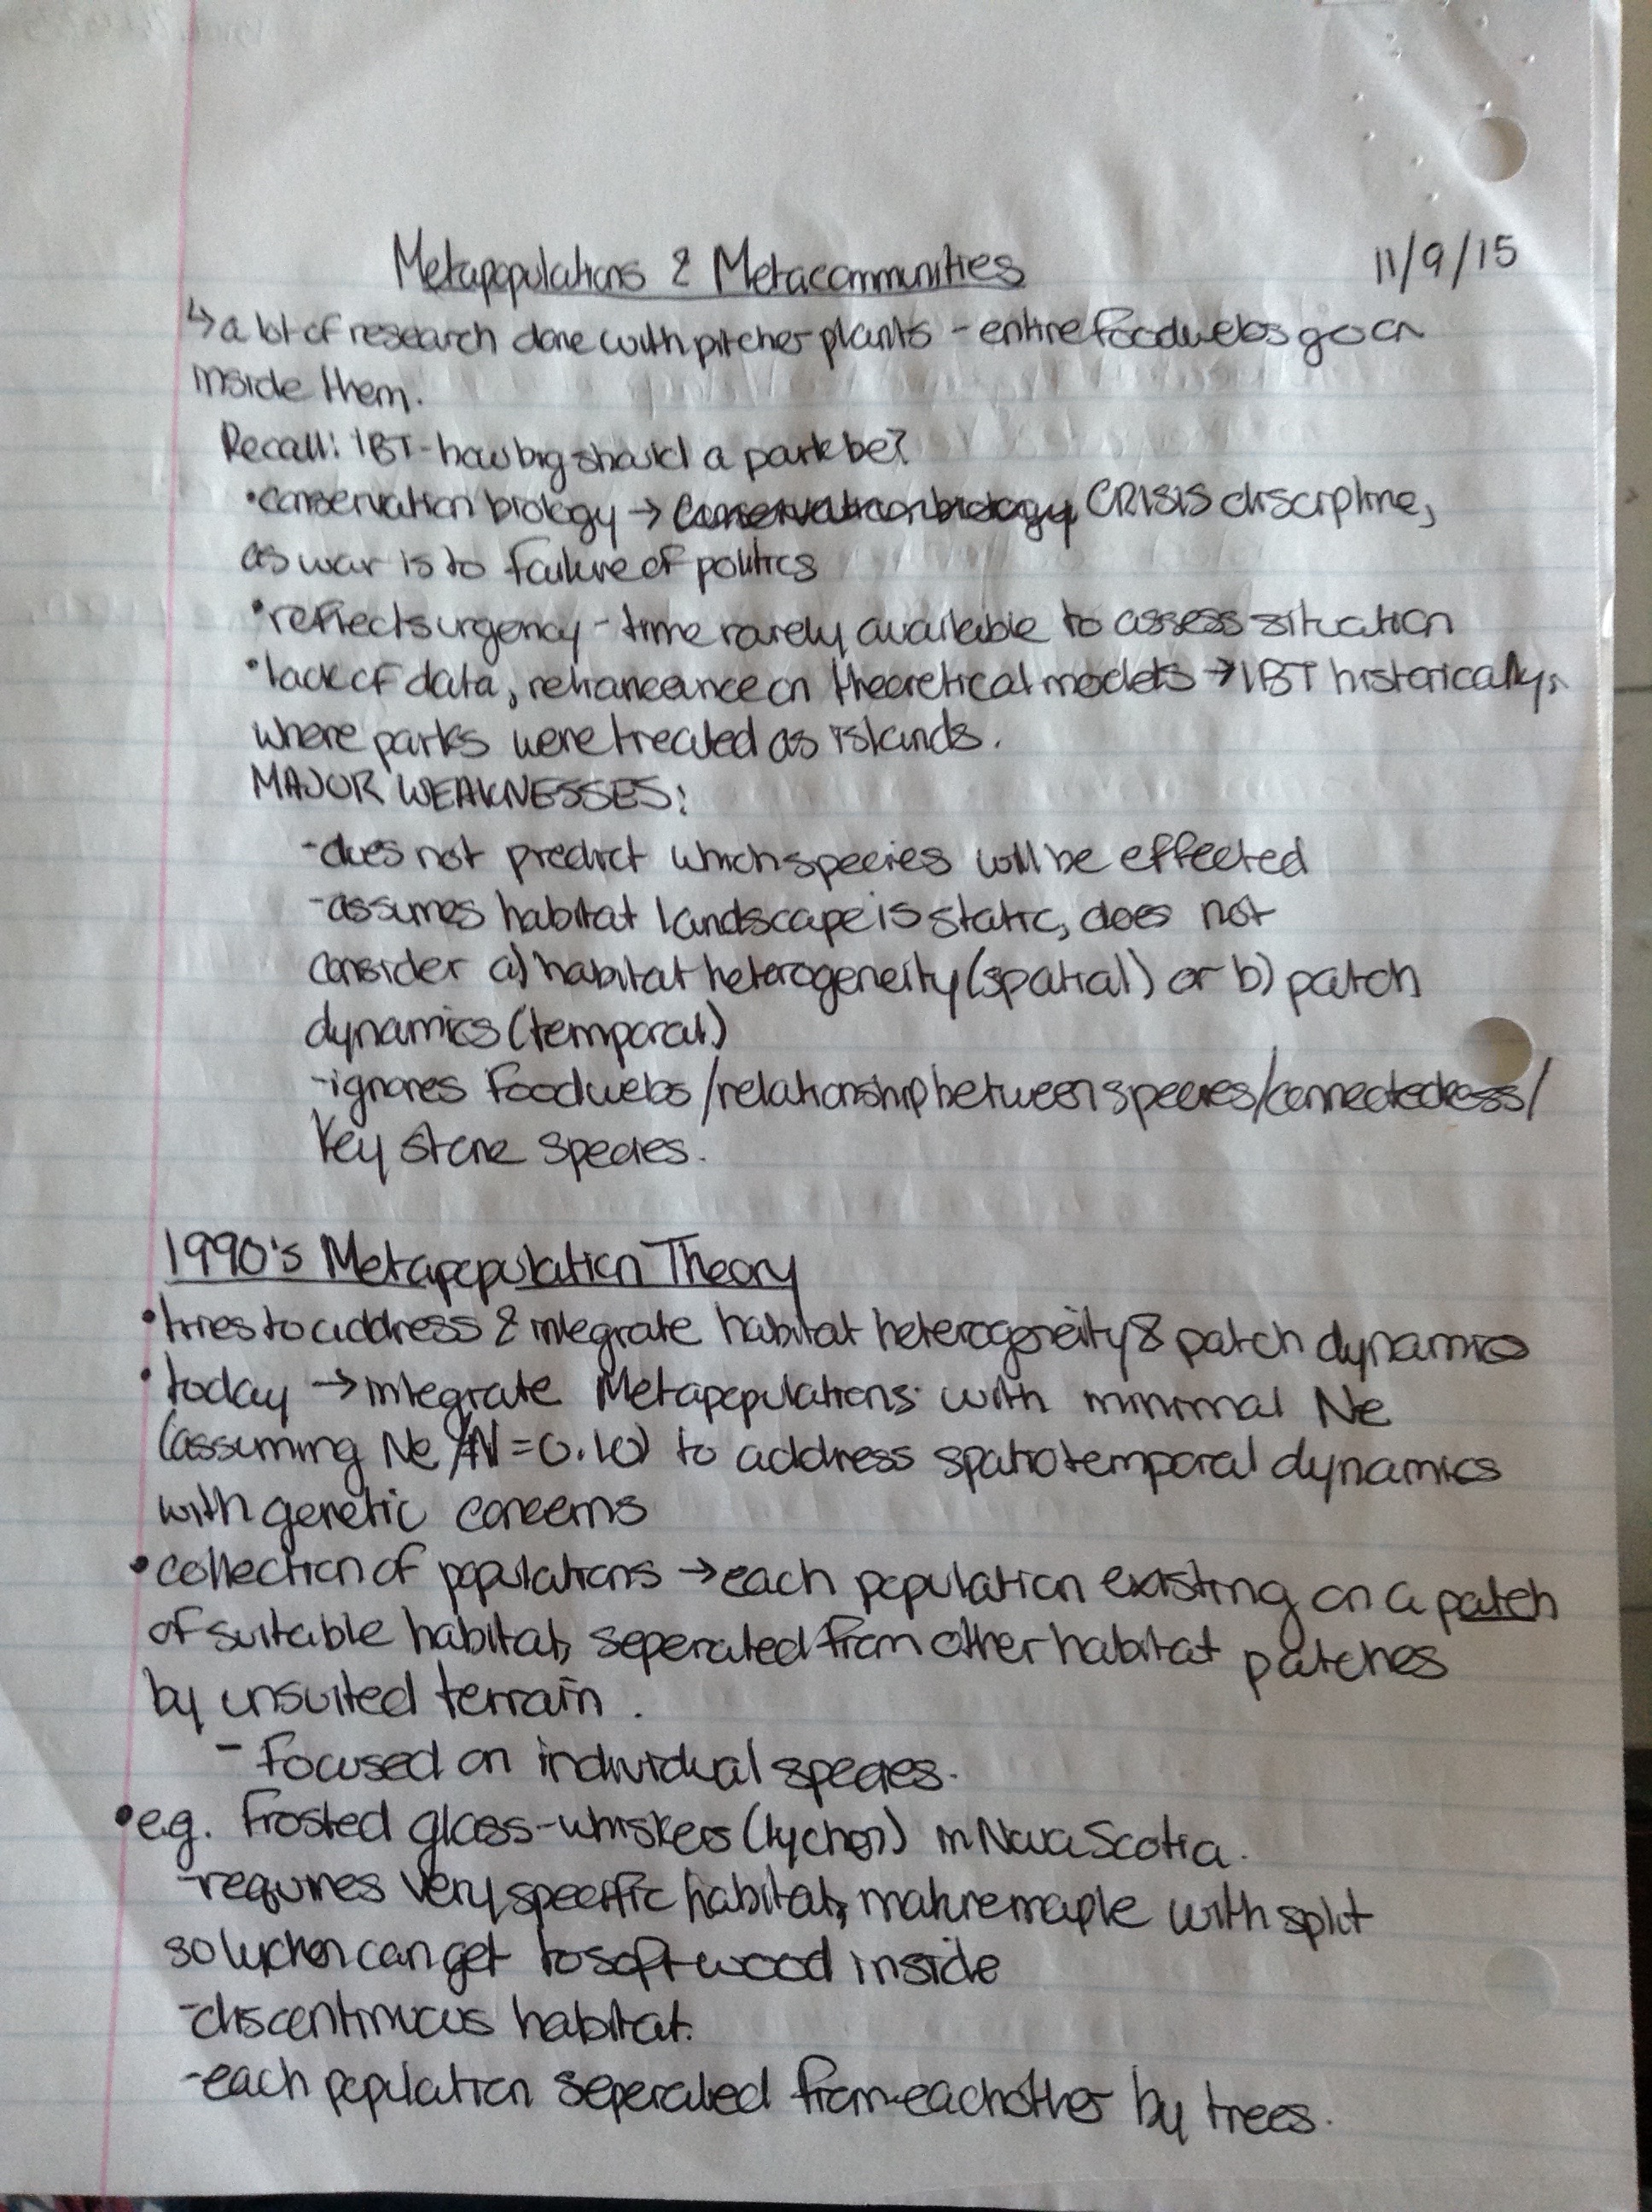 Metapopulations & Metacommunities 11/9/15
↳ a lot of research done with pitcher plants - entire foodwebs go on
inside them.
Recall: IBT - how big should a park be?
• conservation biology → conservation biology CRISIS discipline,
as war is to failure of politics
• reflects urgency - time rarely available to assess situation
• lack of data, on theoretical models → IBT historically,
where parks were treated as islands.
MAJOR WEAKNESSES:
- does not predict which species will be effected
- assumes habitat landscape is static, does not
consider a) habitat heterogeneity (spatial) or b) patch
dynamics (temporal)
- ignores foodwebs / relationship between species / connectedness /
key stone species.
1990's Metapopulation Theory
• tries to address & integrate habitat heterogeneity & patch dynamics
• today → integrate Metapopulations with minimal Ne
(assuming Ne/N = 0.10) to address spatiotemporal dynamics
with genetic concerns
• collection of populations → each population existing on a patch
of suitable habitat, seperated from other habitat patches
by unsuited terrain.
- Focused on individual species.
• e.g. frosted glass-whiskers (lychen) in Nova Scotia.
- requires very specific habitat, mature maple with split
so lychen can get to soft wood inside
- discontinuous habitat.
- each population seperated from eachother by trees.